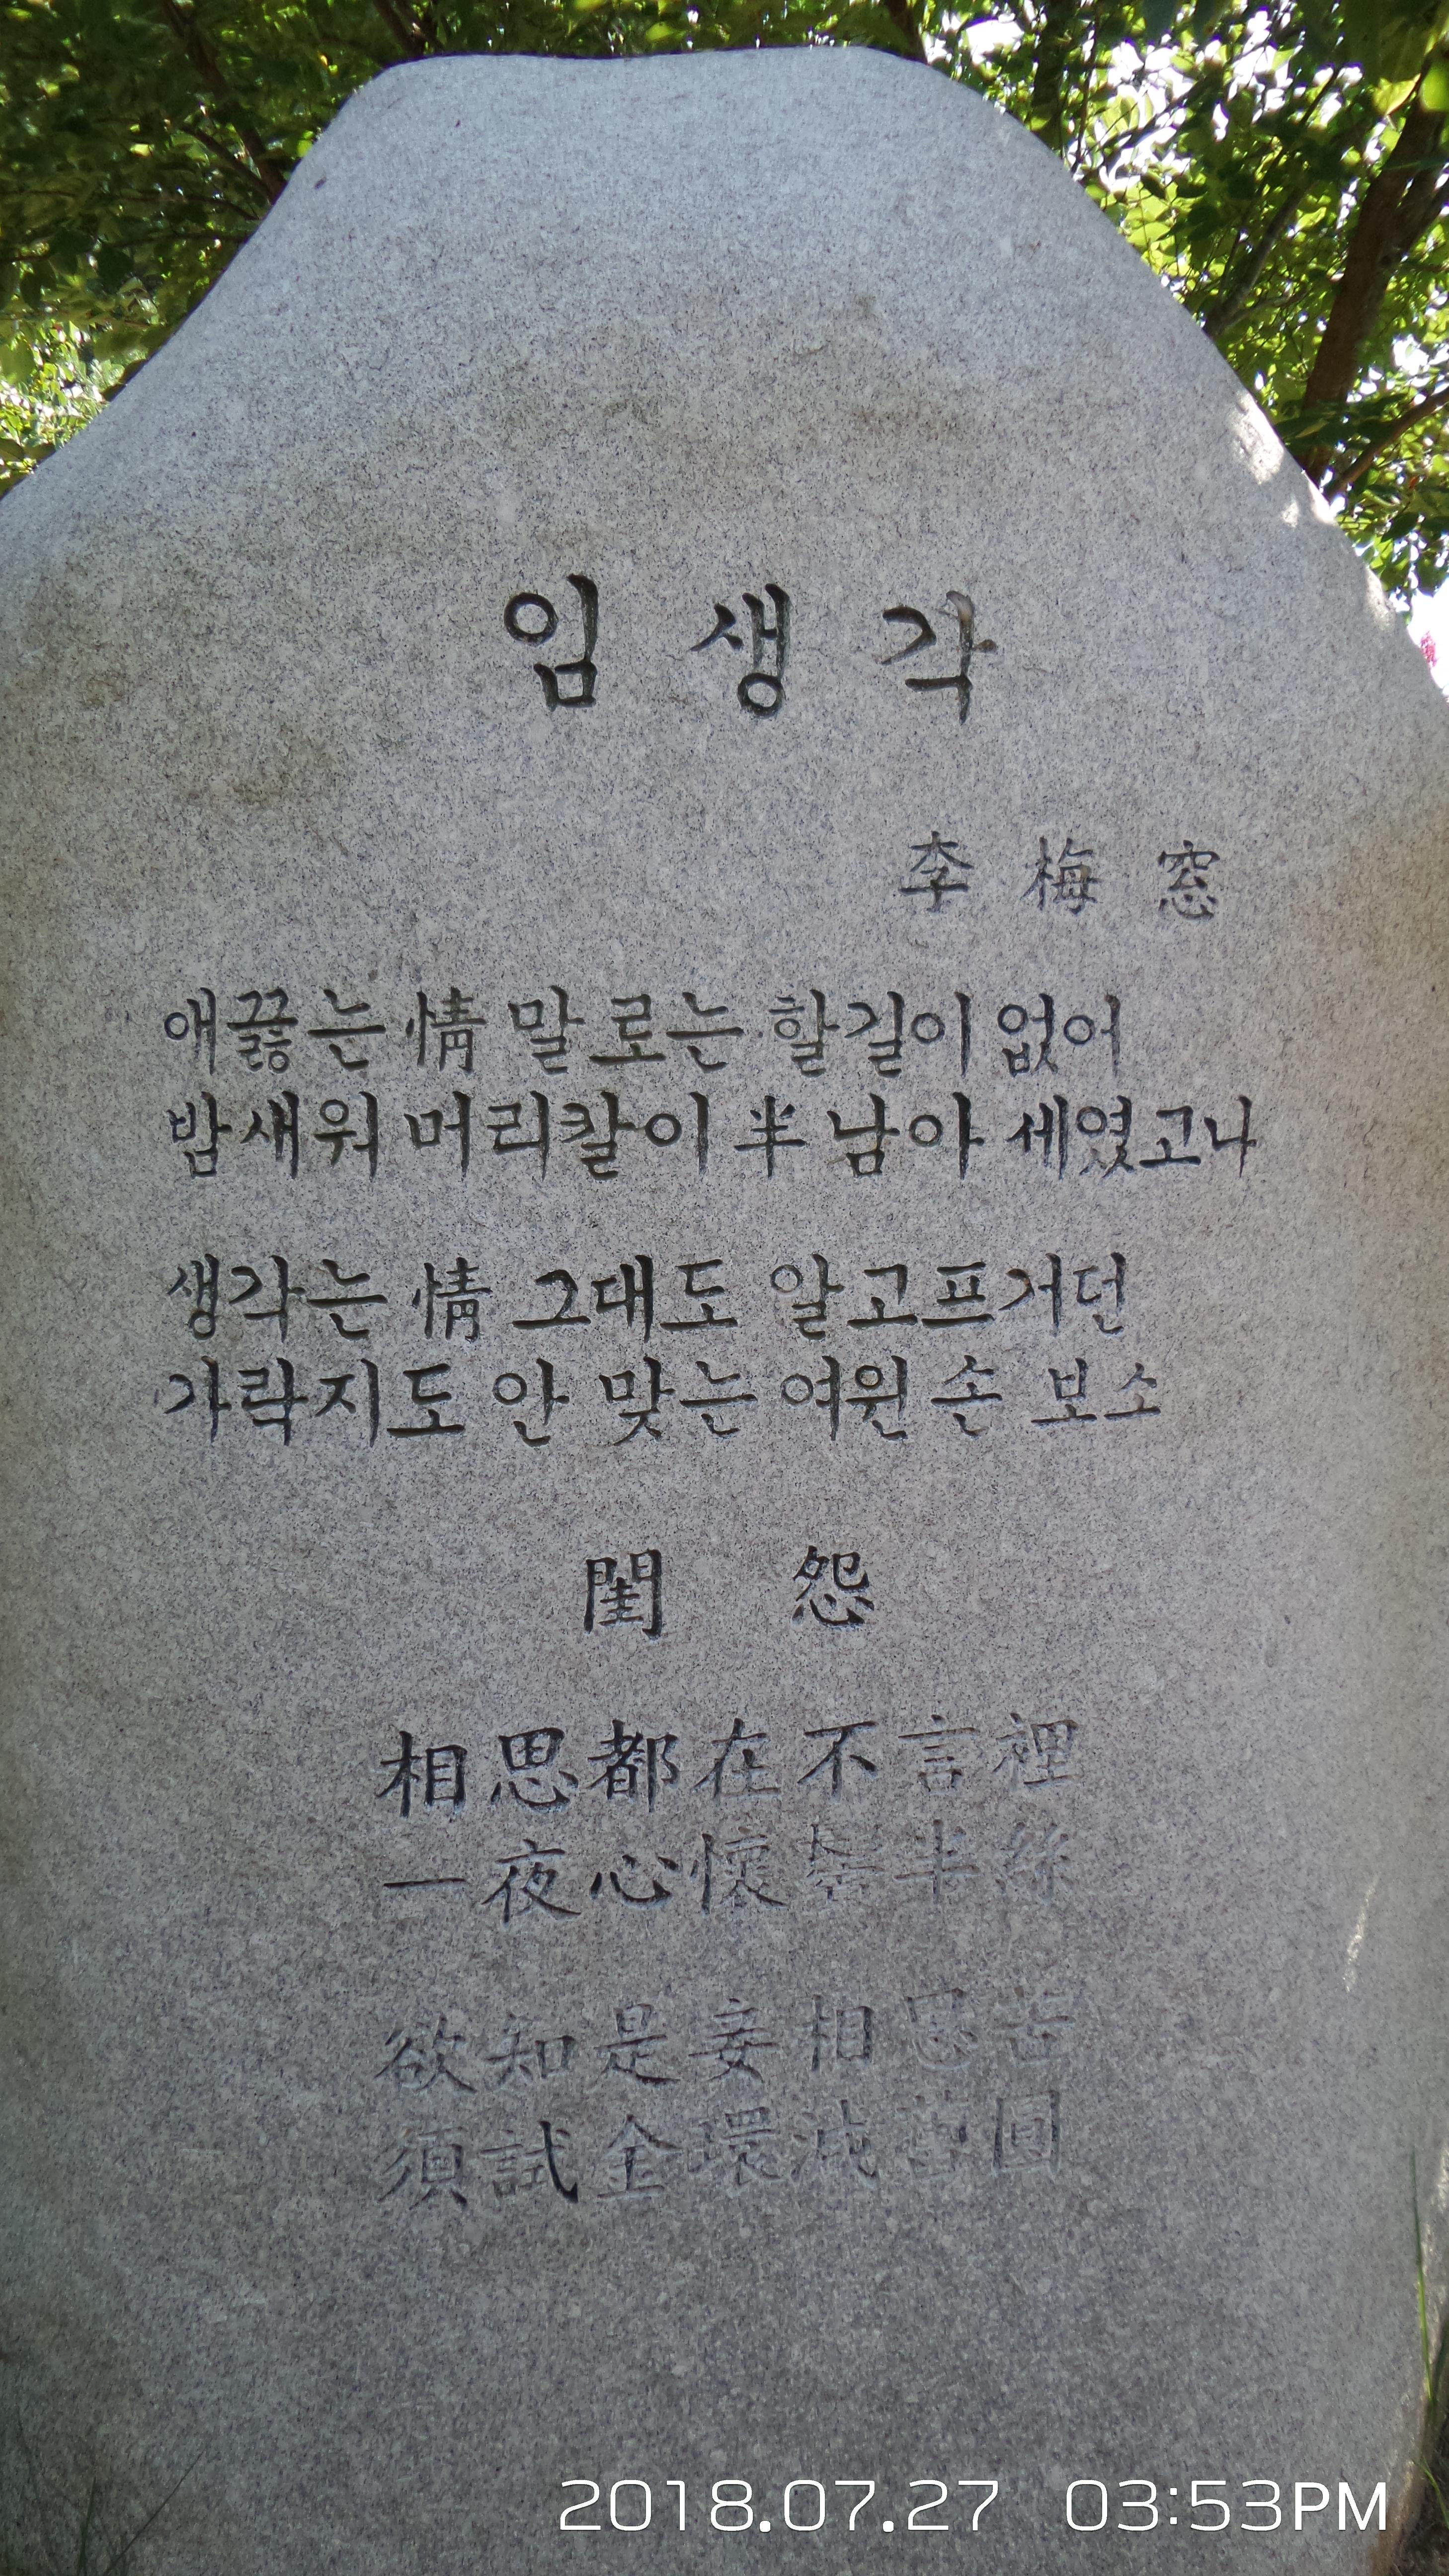 임 생 각
李 梅 窓
애끓는 情 말로는 할길이 없어
밤새워 머리칼이 半 남아 세였고나
생각는 情 그대도 알고프거던
가락지도 안 맞는 여윈 손 보소
閨 怨
相思都在不言裡
一夜心懷鬓半絲
欲知是妾相思苦
須試金環減舊圓
2018.07.27 03:53PM